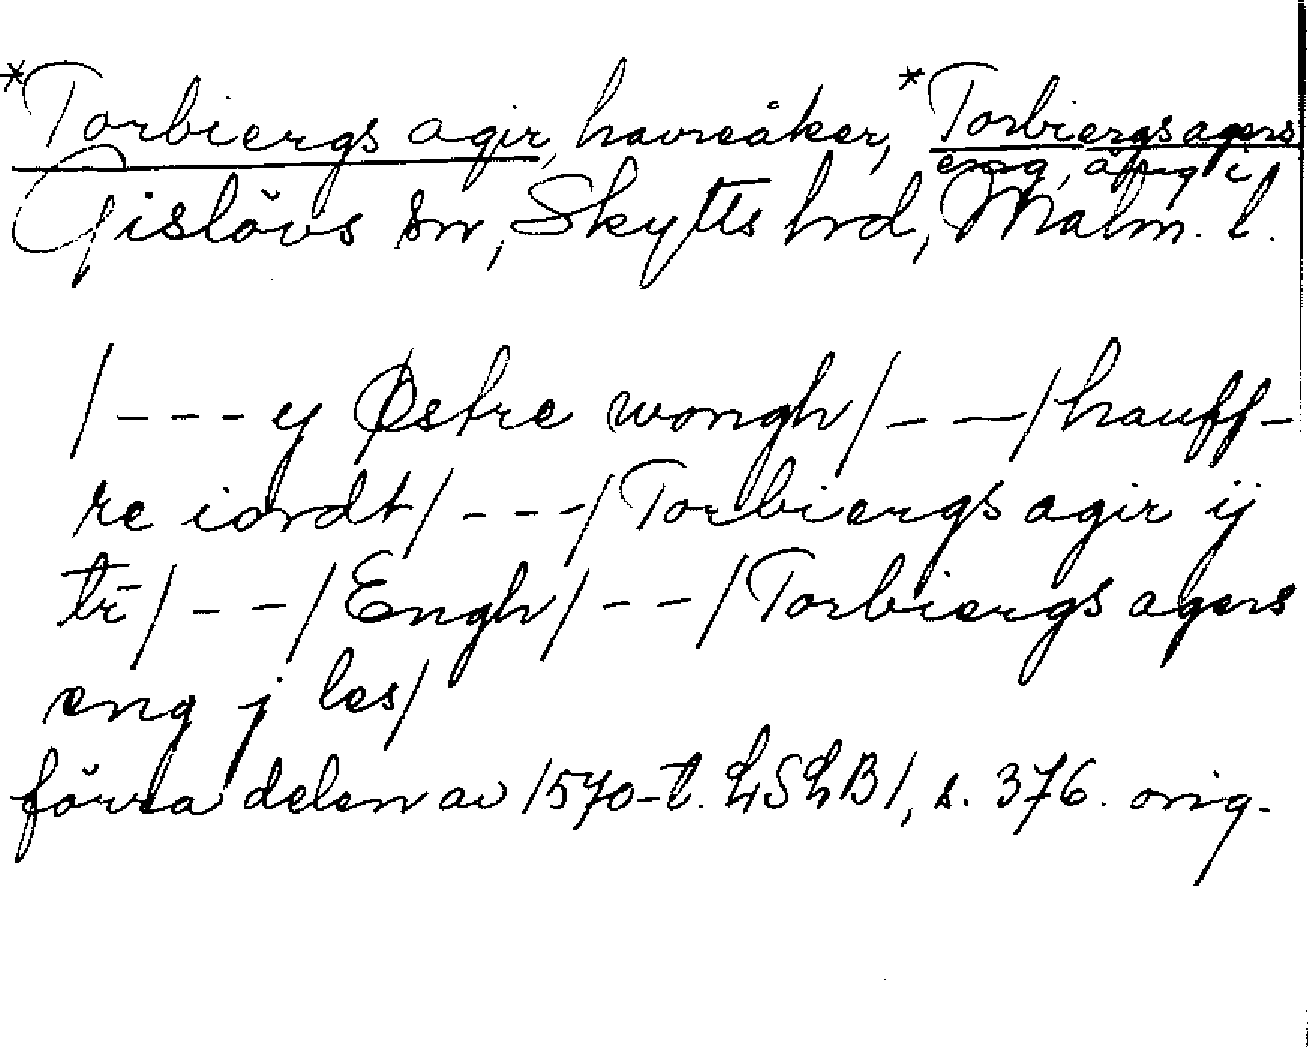 *Torbiergs agir, havreåker, *Torbiergs agers
eng, äng i
Gislövs sn, Skytts hd, Malm. l.
/---y Østre wongh/---/hauff-
re iordt/---/Torbiergs agir ij
tr̄/--/Engh/--/Torbiergs agers
eng j les/
förra delen av 1570-t. LSLB1, s. 376. orig.